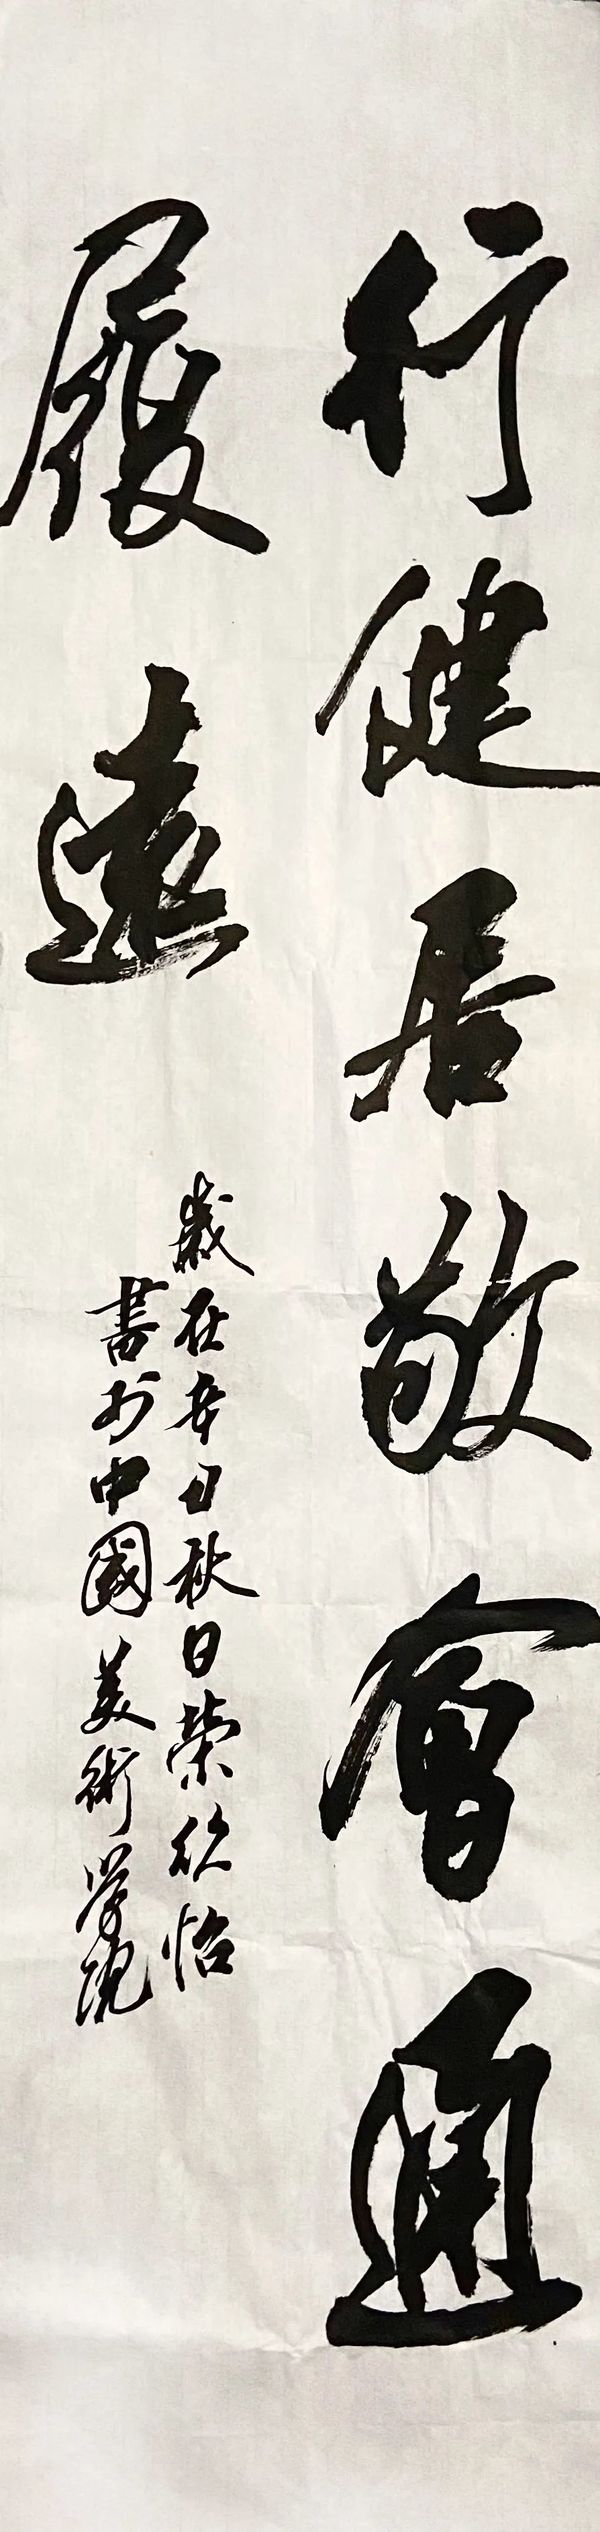 行健居敬會通
履遠
歲在辛丑秋日榮欣怡
書於中國美術学院